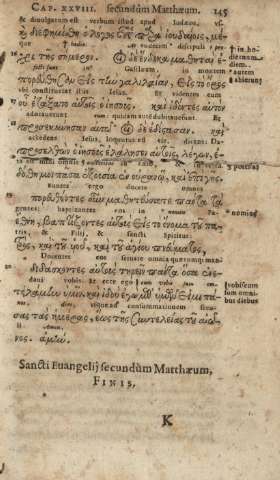 CAP. XXVIII. secundùm Matthæum. 145
& diuulgatum est verbum istud apud Iudæos, vs-
ἡ διεφημίσθη ὁ λόγος οὗτος παρὰ ἰουδαίοις, μέ-
que
χρι τῆς σήμερον. οἱ δὲ ἕνδεκα μαθηταὶ ἐ-
in ho-
diernum
diem.
Galilæam, in montem
πορεύθησαν εἰς τὴν γαλιλαίαν, εἰς τὸ ὄρος
autem
abierunt
vbi constituerat illis Iesus. Et videntes eum
οὗ ἐτάξατο αὐτοῖς ὁ ἰησοῦς, καὶ ἰδόντες αὐτὸν
adorauerunt: quidam autem dubitauerunt. Et
προσεκύνησαν αὐτῷ· οἱ δὲ ἐδίστασαν. καὶ
accedens Iesus, loquutus est eis, dicens: Da-
προσελθὼν ὁ ἰησοῦς ἐλάλησεν αὐτοῖς, λέγων, ἐ-
δόθη μοι πᾶσα ἐξουσία ἐν οὐρανῷ, καὶ ἐπὶ γῆς.
Euntes ergo docete omnes
πορευθέντες οὖν μαθητεύσατε πάντα τὰ
gentes: baptizantes eos in nomine Pa-
ἔθνη, βαπτίζοντες αὐτοὺς εἰς τὸ ὄνομα τοῦ πα-
nomine
tris, & Filij, & sancti Spiritus:
τρὸς, καὶ τοῦ υἱοῦ, καὶ τοῦ ἁγίου πνεύματος,
Docentes eos seruare omnia quæcunque man-
διδάσκοντες αὐτοὺς τηρεῖν πάντα ὅσα ἐνε-
daui vobis. Et ecce ego
τειλάμην ὑμῖν. καὶ ἰδοὺ ἐγὼ μεθ᾽ ὑμῶν εἰμι πά-
vobiscum
sum omni-
bus diebus
σας τὰς ἡμέρας, ἕως τῆς συντελείας τοῦ αἰῶ-
νος. ἀμήν.
Sancti Euangelij secundùm Matthæum,
FINIS.
K